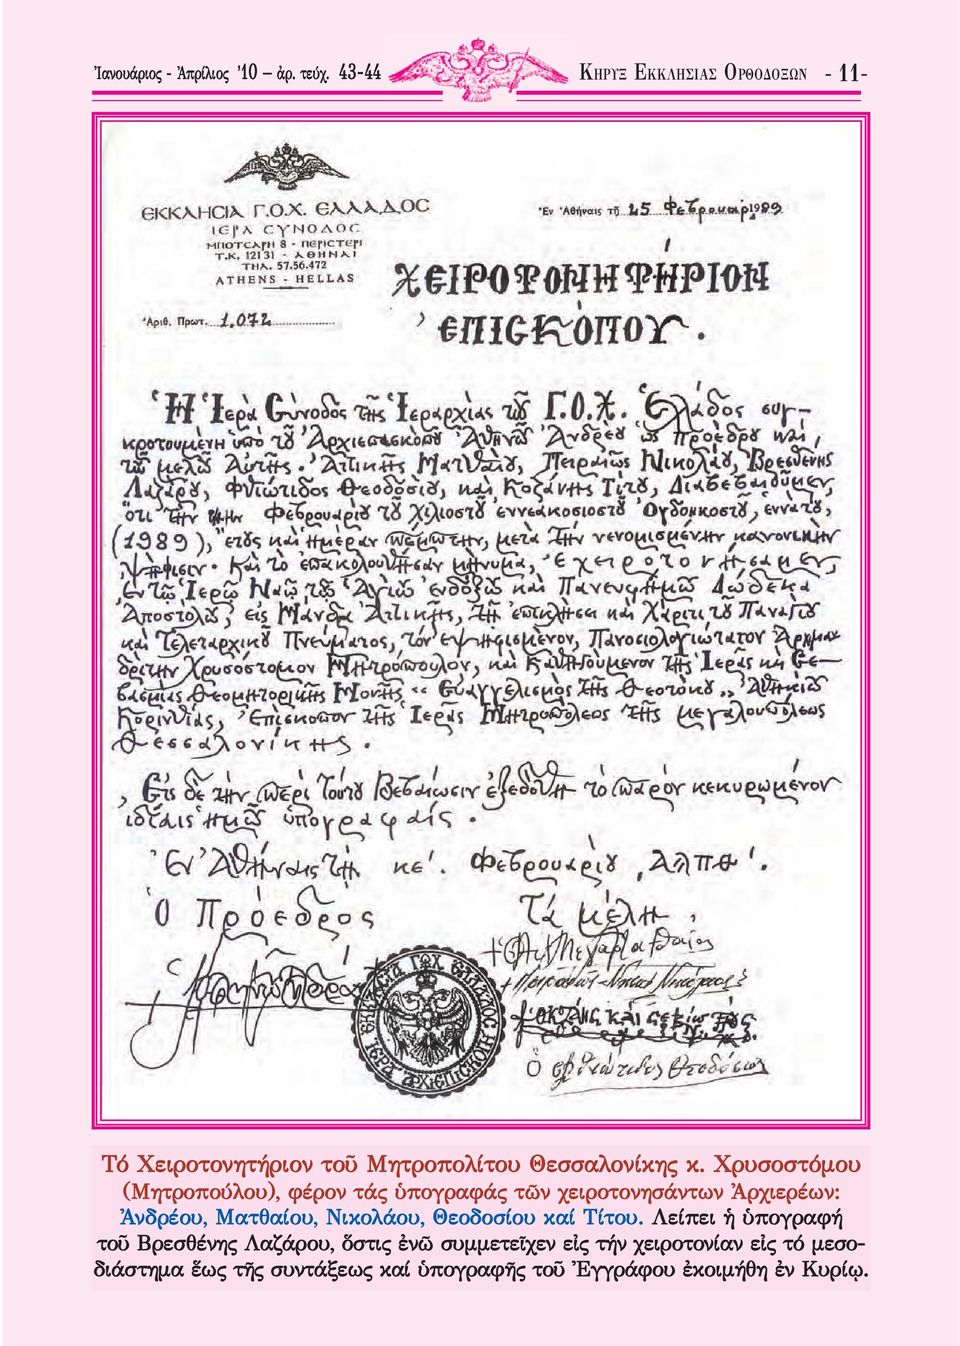 Ἰανουάριος - Ἀπρίλιος ’10 – ἀρ. τεύχ. 43-44
ΚΗΡΥΞ ΕΚΚΛΗΣΙΑΣ ΟΡΘΟΔΟΞΩΝ - 11-
ΕΚΚΛΗCΙΑ Γ.Ο.Χ. ΕΛΛΑΔΟC
ΙΕΡΑ CΥΝΟΔΟC
ΜΠΟΤCΑΡΗ 8 - ΠΕΡΙCΤΕΡΙ
Τ.Κ. 12131 - ΑΘΗΝΑΙ
ΤΗΛ. 57.56.472
ATHENS - HELLAS
Ἀριθ. Πρωτ. 1.072
Ἐν Ἀθήναις τῇ 25 Φεβρουαρ. 1989
ΧΕΙΡΟΤΟΝΗΤΗΡΙΟΝ
ἘΠΙCΚΟΠΟΥ.
Ἡ Ἱερὰ Cύνοδος τῆς Ἱεραρχίας τοῦ Γ.Ο.Χ. Ἑλλάδος συγ-
κροτουμένη ὑπὸ τοῦ Ἀρχιεπισκόπου Ἀθηνῶν Ἀνδρέου ὡς Προέδρου καὶ,
τῶν μελῶν Αὐτῆς. Ἀττικῆς Ματθαίου, Πειραιῶς Νικολάου, Βρεσθένης
Λαζάρου, Φθιώτιδος Θεοδοσίου, καὶ Κοζάνης Τίτου, Διαβεβαιοῦμεν,
ὅτι τὴν Φεβρουαρίου τοῦ χιλιοστοῦ ἐννεακοσιοστοῦ Ὀγδοηκοστοῦ, ἐννάτου,
(1989), ἔτους καὶ ἡμέραν πέμπτην, μετὰ τὴν νενομισμένην κανονικὴν
ψήφισιν. Καὶ τὸ ἐπακολουθῆσαν μήνυμα, Ἐχειροτονήσαμεν,
ἐν τῷ Ἱερῷ Ναῷ τῶν Ἁγίων ἐνδόξων καὶ Πανευφήμων Δώδεκα
Ἀποστόλων, εἰς Μάνδρα Ἀττικῆς, τῇ ἐπικλήσει καὶ Χάριτι τοῦ Παναγίου
καὶ Τελεταρχικοῦ Πνεύματος, τὸν ἐψηφισμένον, Πανοσιολογιώτατον Ἀρχιμαν
δρίτην Χρυσόστομον Μητρόπουλον, καὶ Καθηγούμενον τῆς Ἱερᾶς καὶ Cε-
βασμίας Θεομητορικῆς Μονῆς "Εὐαγγελισμὸς τῆς Θεοτόκου" Ἀθικίων
Κορινθίας, Ἐπίσκοπον τῆς Ἱερᾶς Μητροπόλεως τῆς μεγαλουπόλεως
Θεσσαλονίκης.
Εἰς δὲ τὴν περὶ τούτου Βεβαίωσιν ἐξεδόθη τὸ παρὸν κεκυρωμένον
ἰδίαις ἡμῶν ὑπογραφαίς.
Ἐν Ἀθήναις τῇ κε'. Φεβρουαρίου ͵Αλπθ'.
Ὁ Πρόεδρος
Τὰ μέλη,
ΕΚΚΛΗCΙΑ ΓΟΧ ΕΛΛΑΔΟC
ΙΕΡΑ ΑΡΧΙΕΠΙCΚΟΠΗ
Τό Χειροτονητήριον τοῦ Μητροπολίτου Θεσσαλονίκης κ. Χρυσοστόμου
(Μητροπούλου), φέρον τάς ὑπογραφάς τῶν χειροτονησάντων Ἀρχιερέων:
Ἀνδρέου, Ματθαίου, Νικολάου, Θεοδοσίου καί Τίτου. Λείπει ἡ ὑπογραφή
τοῦ Βρεσθένης Λαζάρου, ὅστις ἐνῶ συμμετεῖχεν εἰς τήν χειροτονίαν εἰς τό μεσο-
διάστημα ἕως τῆς συντάξεως καί ὑπογραφῆς τοῦ Ἐγγράφου ἐκοιμήθη ἐν Κυρίῳ.